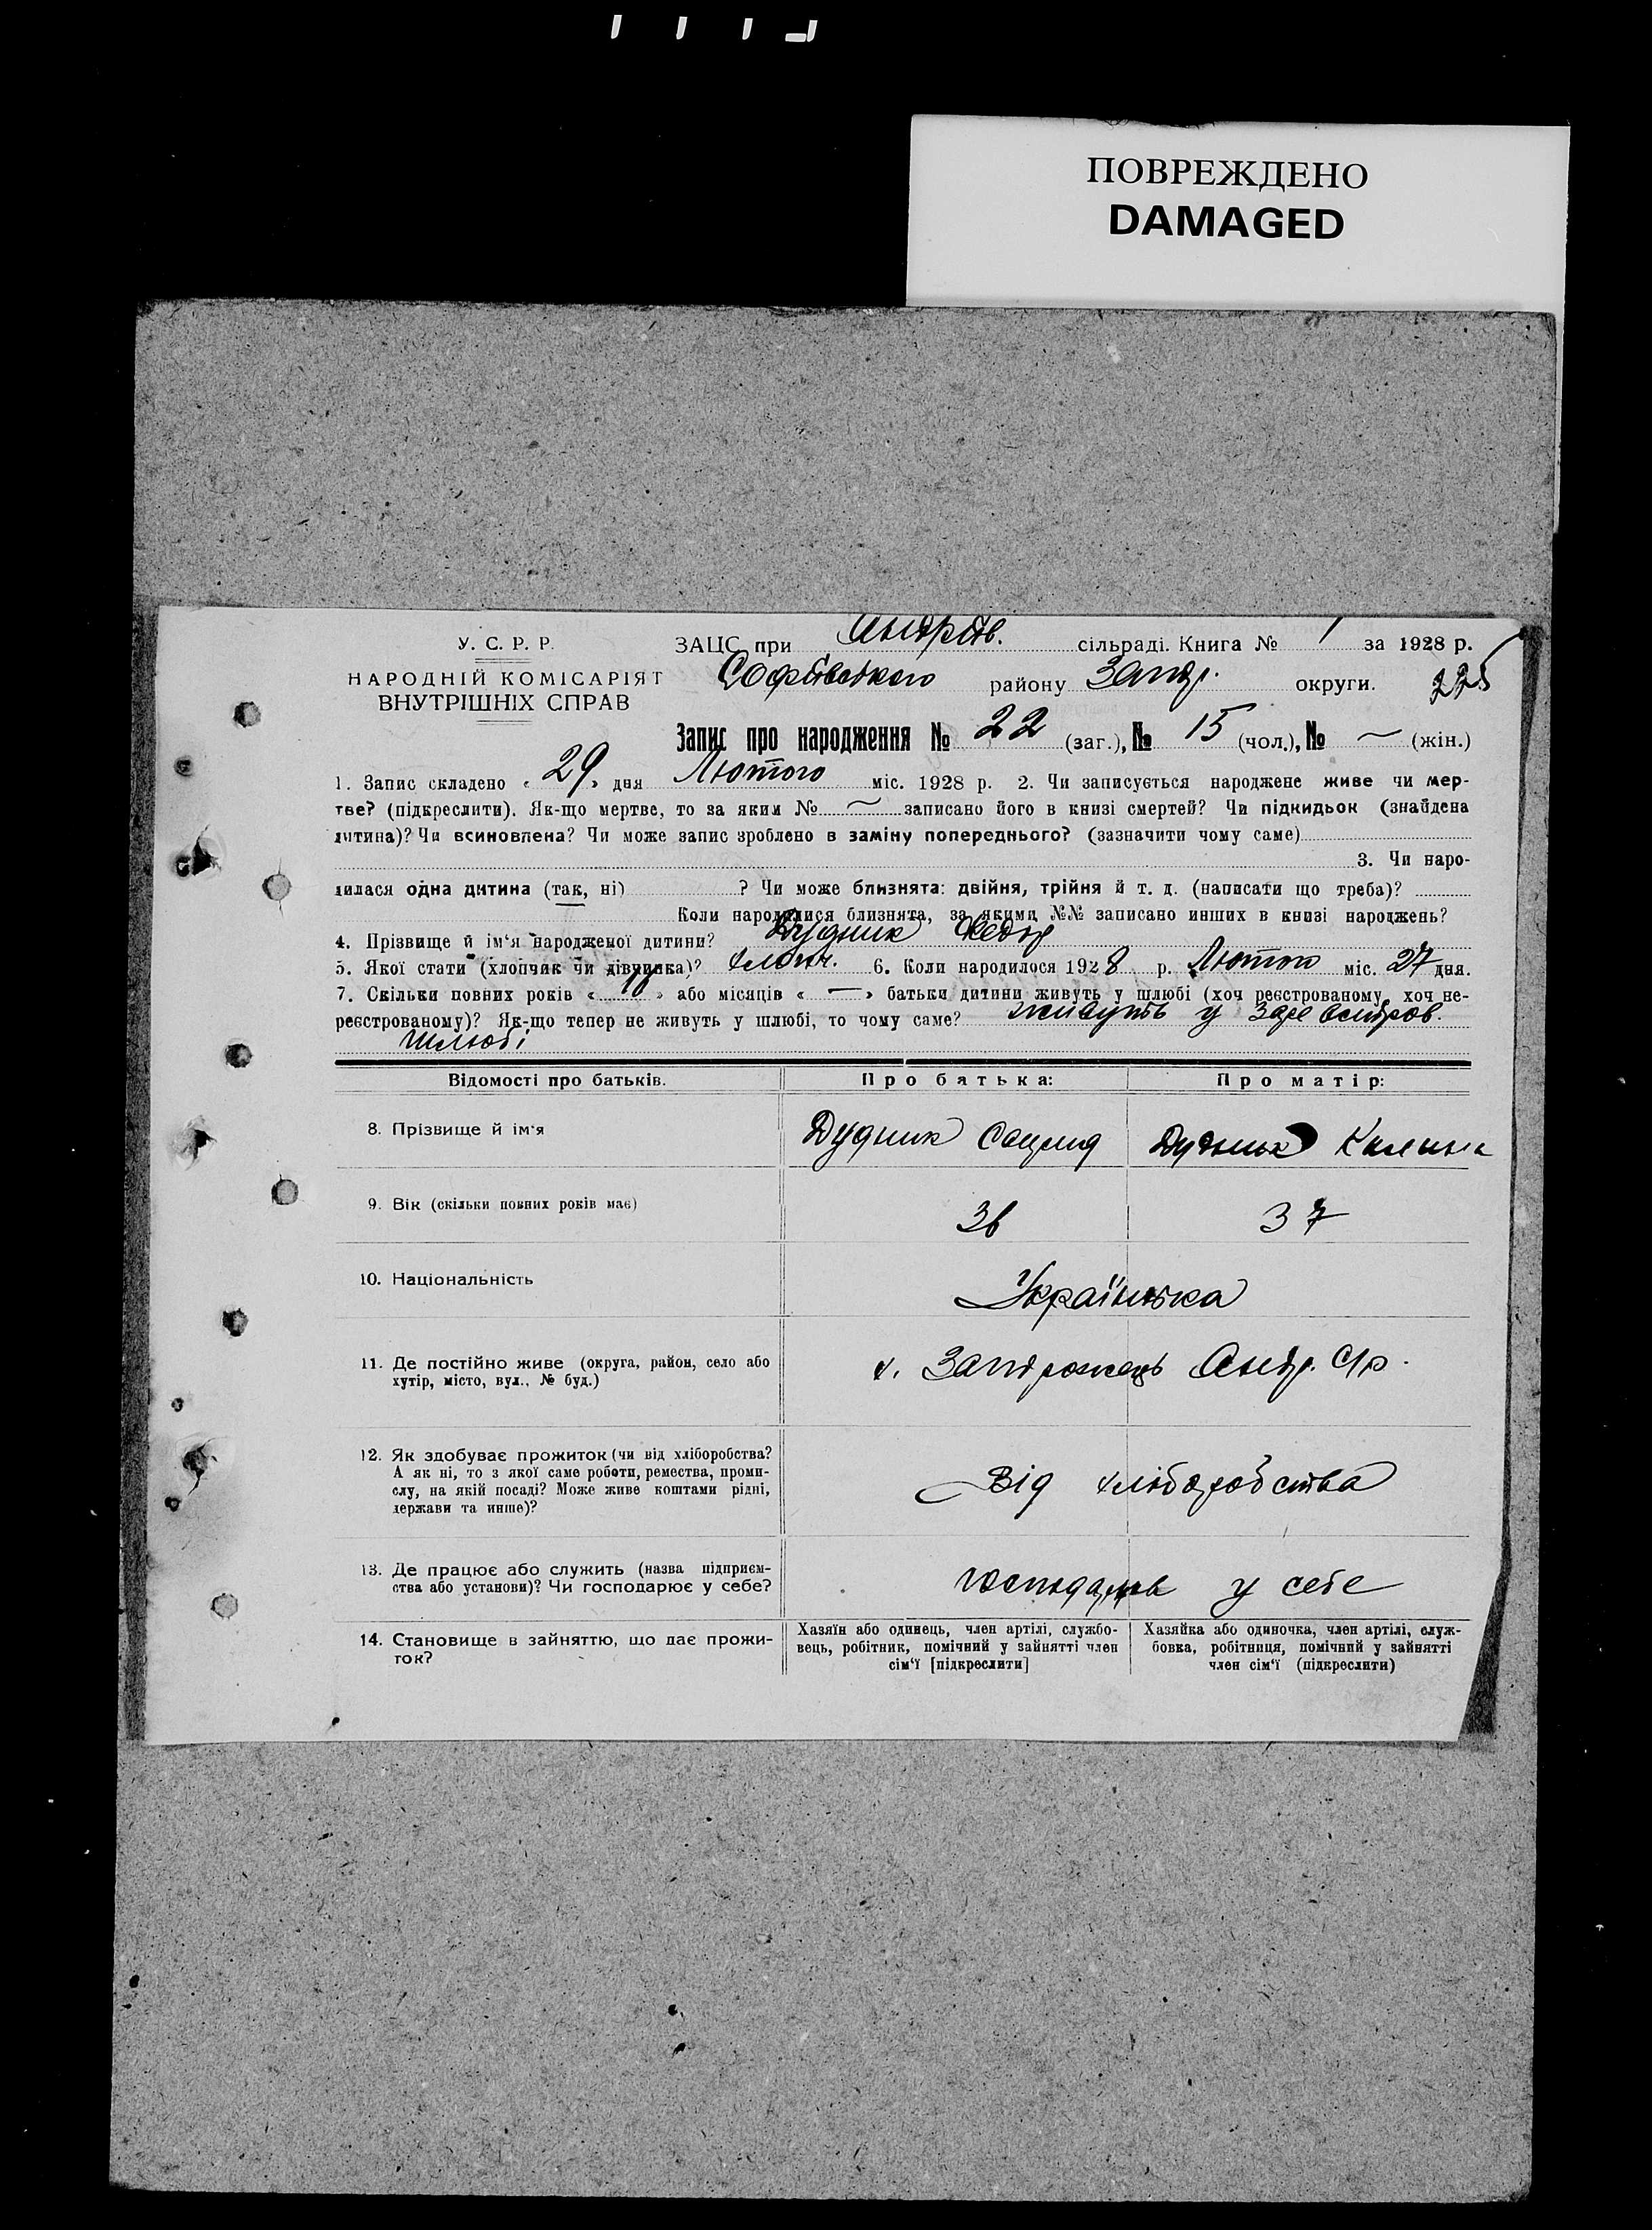 ПОВРЕЖДЕНО
DAMAGED
У. С. Р. Р.
НАРОДНІЙ КОМІСАРІЯТ
ВНУТРІШНІХ СПРАВ
ЗАЦС при Андріїв. сільраді. Книга № 1 за 1928 р.
Софіївського району Запор. округи. 225
Запис про народження № 22 (заг.), № 15 (чол.), № — (жін.)
1. Запис складено « 29 » дня Лютого міс. 1928 р. 2. Чи записується народжене живе чи мер-
тве? (підкреслити). Як-що мертве, то за яким № — записано його в книзі смертей? Чи підкидьок (знайдена
дитина)? Чи всиновлена? Чи може запис зроблено в заміну попереднього? (зазначити чому саме)
3. Чи наро-
дилася одна дитина (так, ні) ? Чи може близнята: двійня, трійня й т. д. (написати що треба)?
Коли народилися близнята, за якими №№ записано инших в книзі народжень?
4. Прізвище й ім‘я народженої дитини? Дудник Федір
5. Якої стати (хлопчик чи дівчинка)? хлопч. 6. Коли народилося 1928 р. Лютого міс. 27 дня.
7. Скільки повних років « » або місяців « — » батьки дитини живуть у шлюбі (хоч реєстрованому, хоч не-
реєстрованому)? Як-що тепер не живуть у шлюбі, то чому саме? живуть у
шлюбі
Відомості про батьків. Про батька: Про матір:
8. Прізвище й ім‘я Дудник Дудник Калина
9. Вік (скільки повних років має) 36 37
10. Національність Українська
11. Де постійно живе (округа, район, село або
хутір, місто, вул., № буд.) х. Запорожець Андр. С/р.
12. Як здобуває прожиток (чи від хліборобства?
А як ні, то з якої саме роботи, ремества, проми-
слу, на якій посаді? Може живе коштами рідні,
держави та инше)? Від хліборобства
13. Де працює або служить (назва підприєм-
ства або установи)? Чи господарює у себе? у себе
14. Становище в зайняттю, що дає прожи-
ток?
Хазяїн або одинець, член артілі, службо-
вець, робітник, помічний у зайнятті член
сім‘ї [підкреслити]
Хазяйка або одиночка, член артілі, служ-
бовка, робітниця, помічний у зайнятті
член сім‘ї (підкреслити)